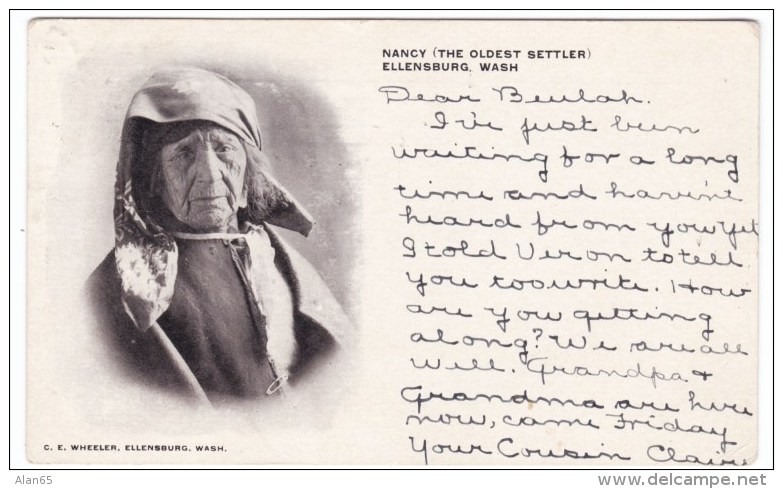 NANCY (THE OLDEST SETTLER)
ELLENSBURG, WASH
Dear Beulah.
I've just been
waiting for a long
time and haven't
heard from you yet
I told Veron to tell
you too write. How
are you getting
along? We are all
well. Grandpa +
Grandma are here
now, came Friday
Your Cousin Claire
C. E. WHEELER, ELLENSBURG, WASH.
Alan65
www.delcampe.net